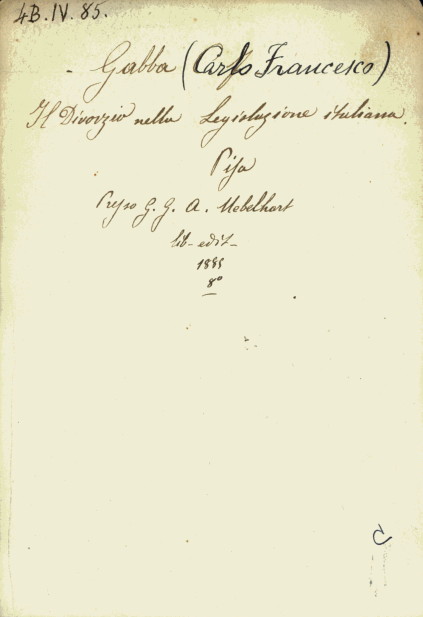 4B.IV.85.
- Gabba (Carlo Francesco)
Il Divorzio nella Legislazione italiana.
Pisa
Presso G. G. A. Uebelhart
lib- edit-
1885
8º
C